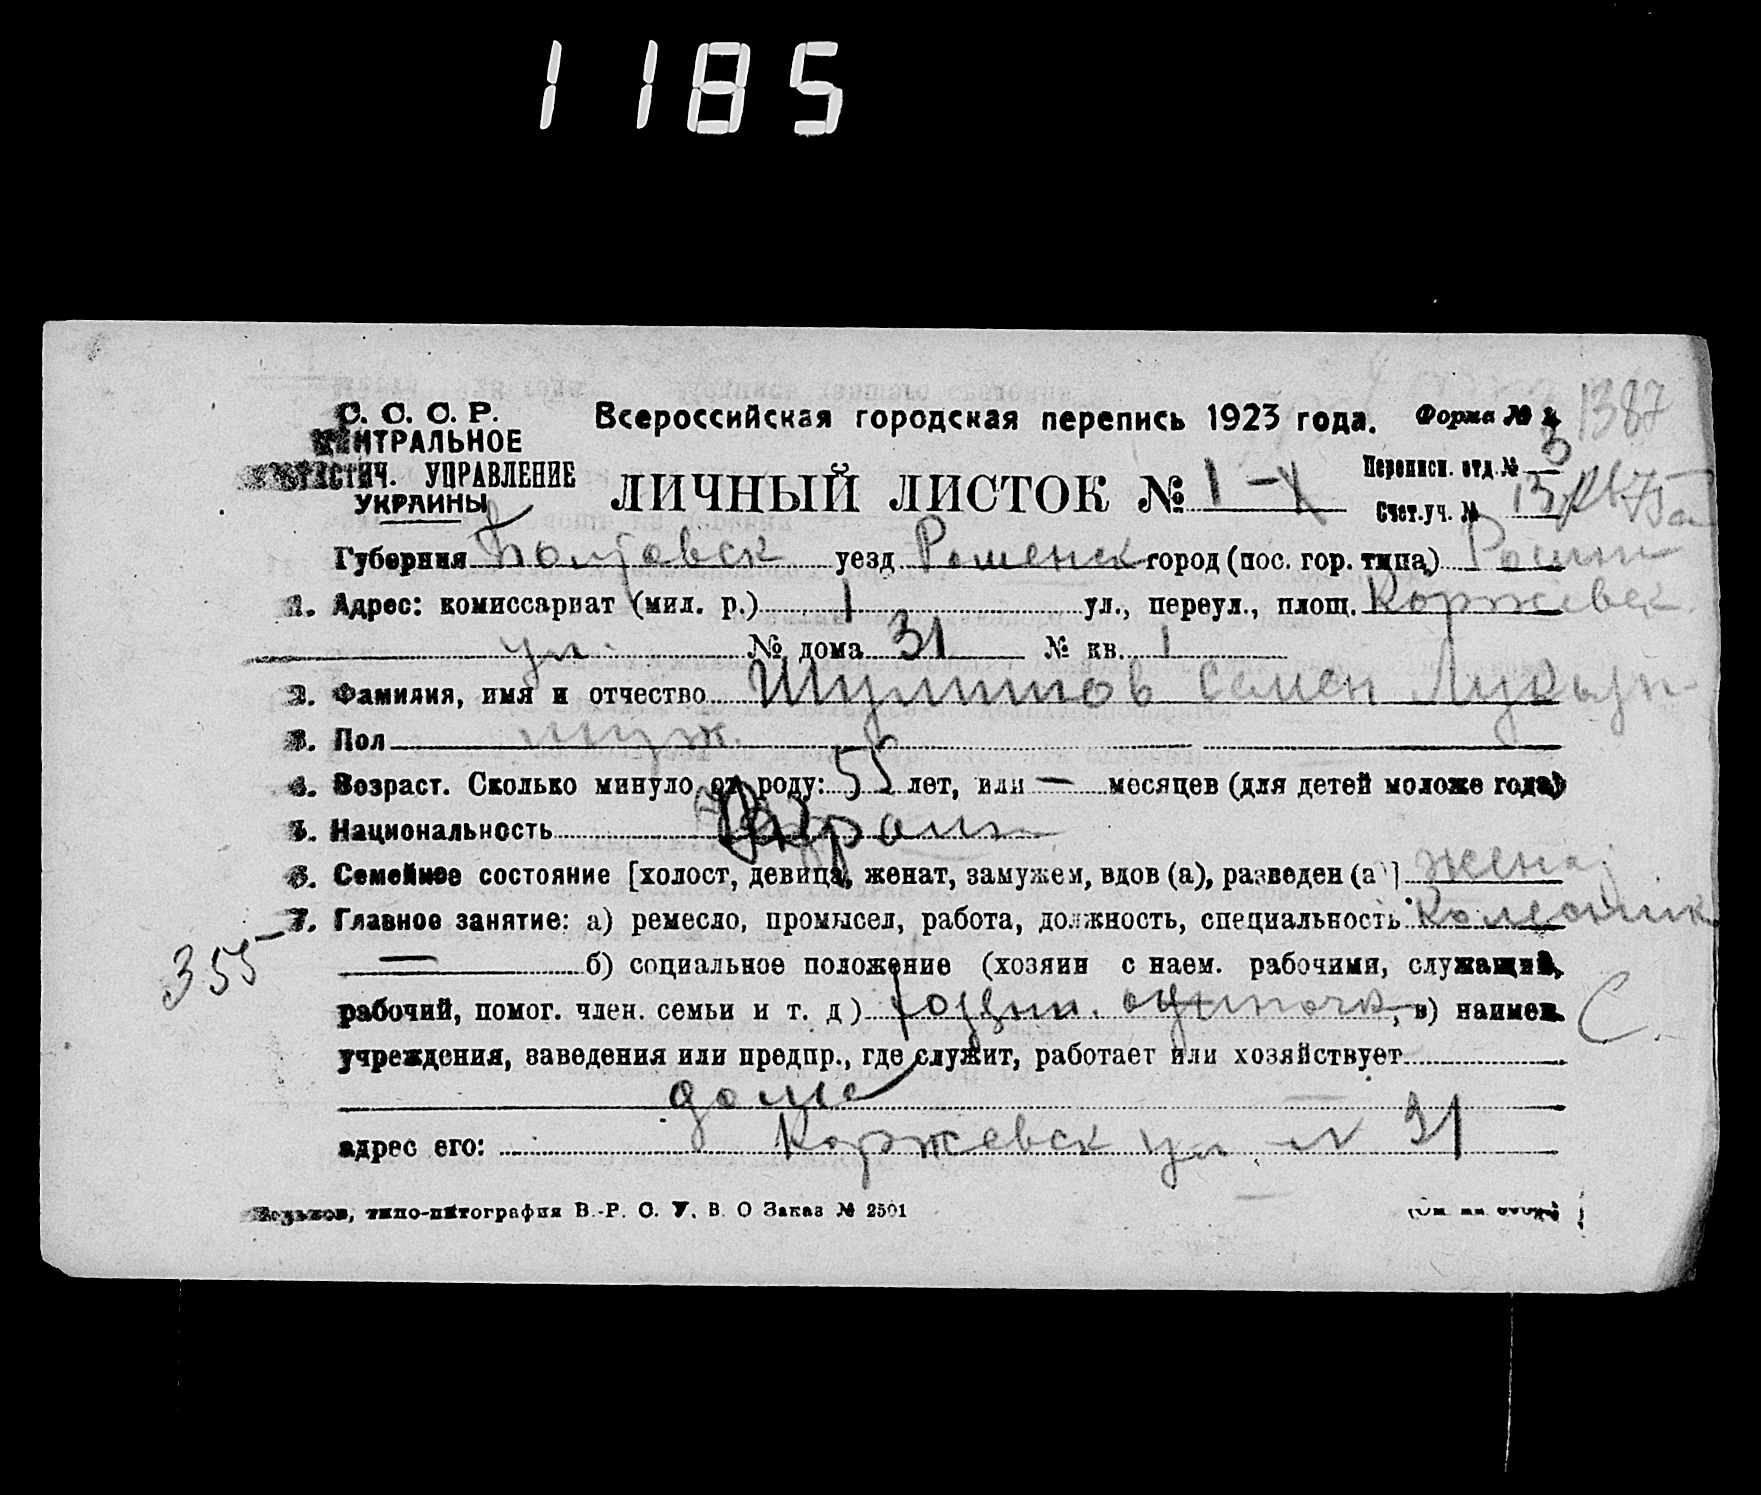 1185
С. С. С. Р. Всероссийская городская перепись 1923 года. Форма № 1387
ЦЕНТРАЛЬНОЕ
СТАТИСТИЧ. УПРАВЛЕНИЕ
УКРАИНЫ
ЛИЧНЫЙ ЛИСТОК № 1 -
Переписн. отд. № 3
Счет.уч. № 13
Губерния Полтавск уезд Роменск город (пос. гор. типа)
1. Адрес: комиссариат (мил. р.) 1 ул., переул., площ. Коржевск.
ул. № дома 31 № кв. 1
2. Фамилия, имя и отчество Семен
3. Пол муж.
4. Возраст. Сколько минуло от роду: 55 лет, или — месяцев (для детей моложе года)
5. Национальность Украин
6. Семейное состояние [холост, девица, женат, замужем, вдов (а), разведен (а)] женат
7. Главное занятие: а) ремесло, промысел, работа, должность, специальность
355 — б) социальное положение (хозяин с наем. рабочими, служащий,
рабочий, помог. член. семьи и т. д) одиночк, в) наимен. С.
учреждения, заведения или предпр., где служит, работает или хозяйствует
доме
адрес его: Коржевск ул № 31
Харьков, типо-литография В.-Р. С. У. В. О Заказ № 2501